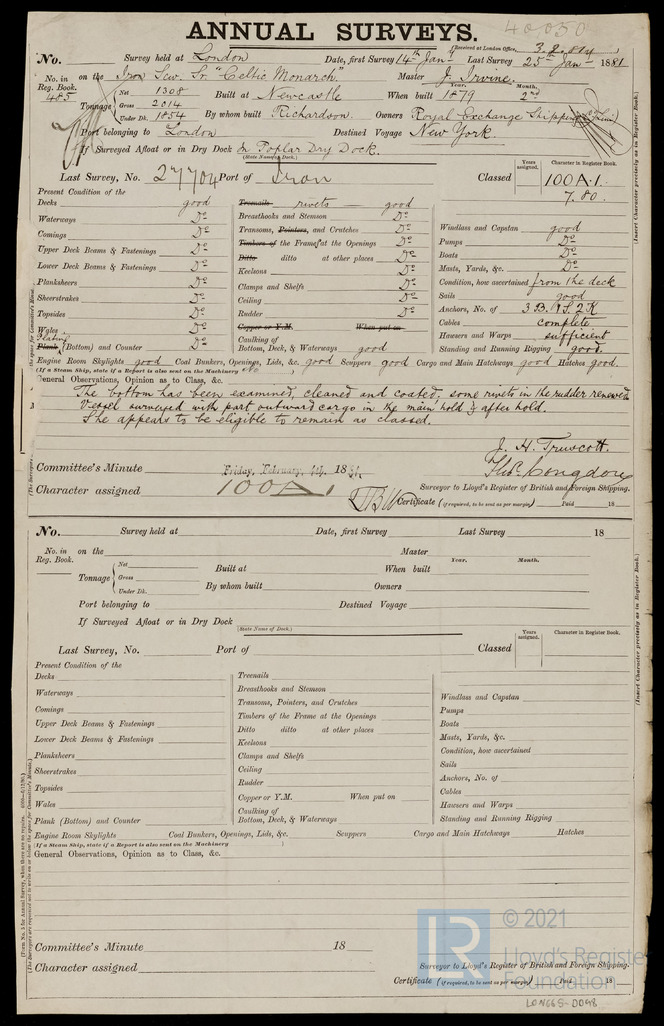 40,050
ANNUAL SURVEYS.
No. Survey held at London Date, first Survey 14th Jany Received at London Office, 3.2.81 Last Survey 25th Jany 1881
No. in Reg. Book. 485 on the Iron Scw. Sr. "Celtic Monarch" Master J. Irvine.
Tonnage Net 1308 Built at Newcastle When built Year. 1879 Month. 2nd
Gross 2014
Under Dk. 1854 By whom built Richardson. Owners Royal Exchange Shipping
Port belonging to London Destined Voyage New York.
If Surveyed Afloat or in Dry Dock In Poplar Dry Dock.
(State Name of Dock.)
Last Survey, No. 27704 Port of Iron Classed Years assigned. Character in Register Book. 100A.1.
7.80.
Present Condition of the
Decks good
Waterways Do
Comings Do
Upper Deck Beams & Fastenings Do
Lower Deck Beams & Fastenings Do
Planksheers Do
Sheerstrakes Do
Topsides Do
Wales Do
Plating
Plank (Bottom) and Counter Do
Treenails rivets good
Breasthooks and Stemson Do
Transoms, Pointers, and Crutches Do
Timbers of the Frame at the Openings Do
Ditto ditto at other places Do
Keelsons Do
Clamps and Shelfs Do
Ceiling Do
Rudder Do
Copper or Y.M. When put on
Caulking of
Bottom, Decks, & Waterways good
Windlass and Capstan good
Pumps Do
Boats Do
Masts, Yards, &c. Do
Condition, how ascertained from the deck
Sails good
Anchors, No. of 3 B. 1 S. 2 K
Cables complete
Hawsers and Warps sufficient
Standing and Running Rigging good
Engine Room Skylights good Coal Bunkers, Openings, Lids, &c. good Scuppers good Cargo and Main Hatchways good Hatches good.
(If a Steam Ship, state if a Report is also sent on the Machinery No )
General Observations, Opinion as to Class, &c.
The bottom has been examined, cleaned and coated; some rivets in the rudder renewed
Vessel surveyed with part outward cargo in the main hold & after hold.
She appears to be eligible to remain as classed.
J. H. Truscott.
Thos. Congdon
Committee's Minute Friday, February, 4th, 1881.
Surveyor to Lloyd's Register of British and Foreign Shipping.
Character assigned 100A1
Certificate (if required, to be sent as per margin) Paid 18
(Insert Character precisely as in Register Book.)
No. Survey held at Date, first Survey Last Survey 18
No. in Reg. Book. on the Master
Tonnage Net Built at When built Year. Month.
Gross
Under Dk. By whom built Owners
Port belonging to Destined Voyage
If Surveyed Afloat or in Dry Dock
(State Name of Dock.)
Last Survey, No. Port of Classed Years assigned. Character in Register Book.
Present Condition of the
Decks
Waterways
Comings
Upper Deck Beams & Fastenings
Lower Deck Beams & Fastenings
Planksheers
Sheerstrakes
Topsides
Wales
Plank (Bottom) and Counter
Treenails
Breasthooks and Stemson
Transoms, Pointers, and Crutches
Timbers of the Frame at the Openings
Ditto ditto at other places
Keelsons
Clamps and Shelfs
Ceiling
Rudder
Copper or Y.M. When put on
Caulking of
Bottom, Deck, & Waterways
Windlass and Capstan
Pumps
Boats
Masts, Yards, &c.
Condition, how ascertained
Sails
Anchors, No. of
Cables
Hawsers and Warps
Standing and Running Rigging
Engine Room Skylights Coal Bunkers, Openings, Lids, &c. Scuppers Cargo and Main Hatchways Hatches
(If a Steam Ship, state if a Report is also sent on the Machinery )
General Observations, Opinion as to Class, &c.
(Insert Character precisely as in Register Book.)
Committee's Minute 18
Character assigned
Surveyor to Lloyd's Register of British and Foreign Shipping.
Certificate (if required, to be sent as per margin) Paid 18
LR © 2021
Lloyd's Register
Foundation
LON665-0098